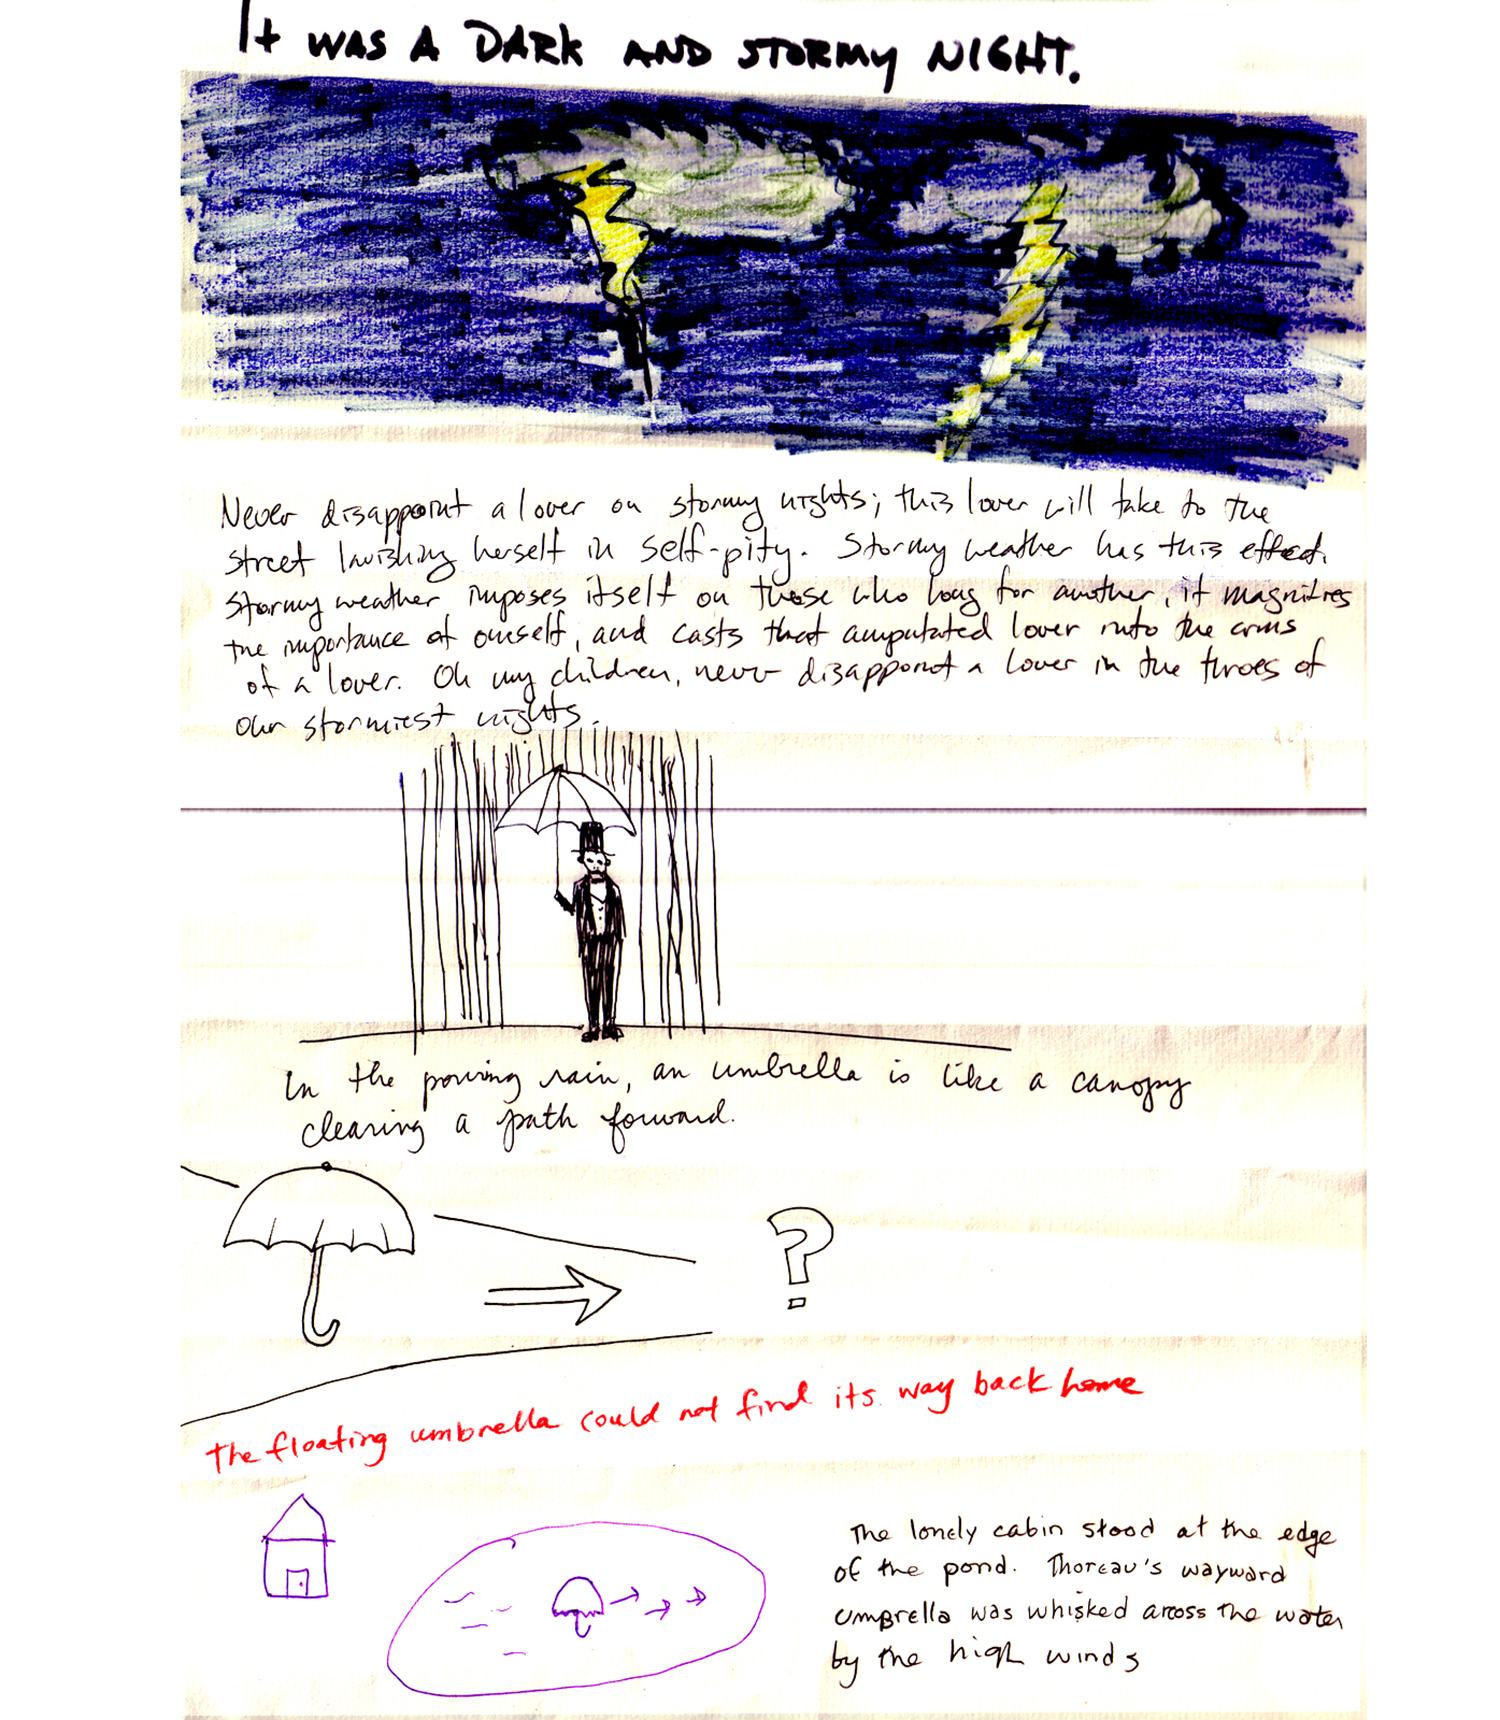 It was a dark and stormy night.
Never disappoint a lover on stormy nights; this lover will take to the
street lavishing herself in self-pity. Stormy weather has this effect.
Stormy weather imposes itself on those who long for another, it magnifies
the importance of oneself, and casts that amputated lover into the arms
of a lover. Oh my children, never disappoint a lover in the throes of
our stormiest nights.
In the pouring rain, an umbrella is like a canopy
clearing a path forward.
?
The floating umbrella could not find its way back home
The lonely cabin stood at the edge
of the pond. Thoreau's wayward
umbrella was whisked across the water
by the high winds